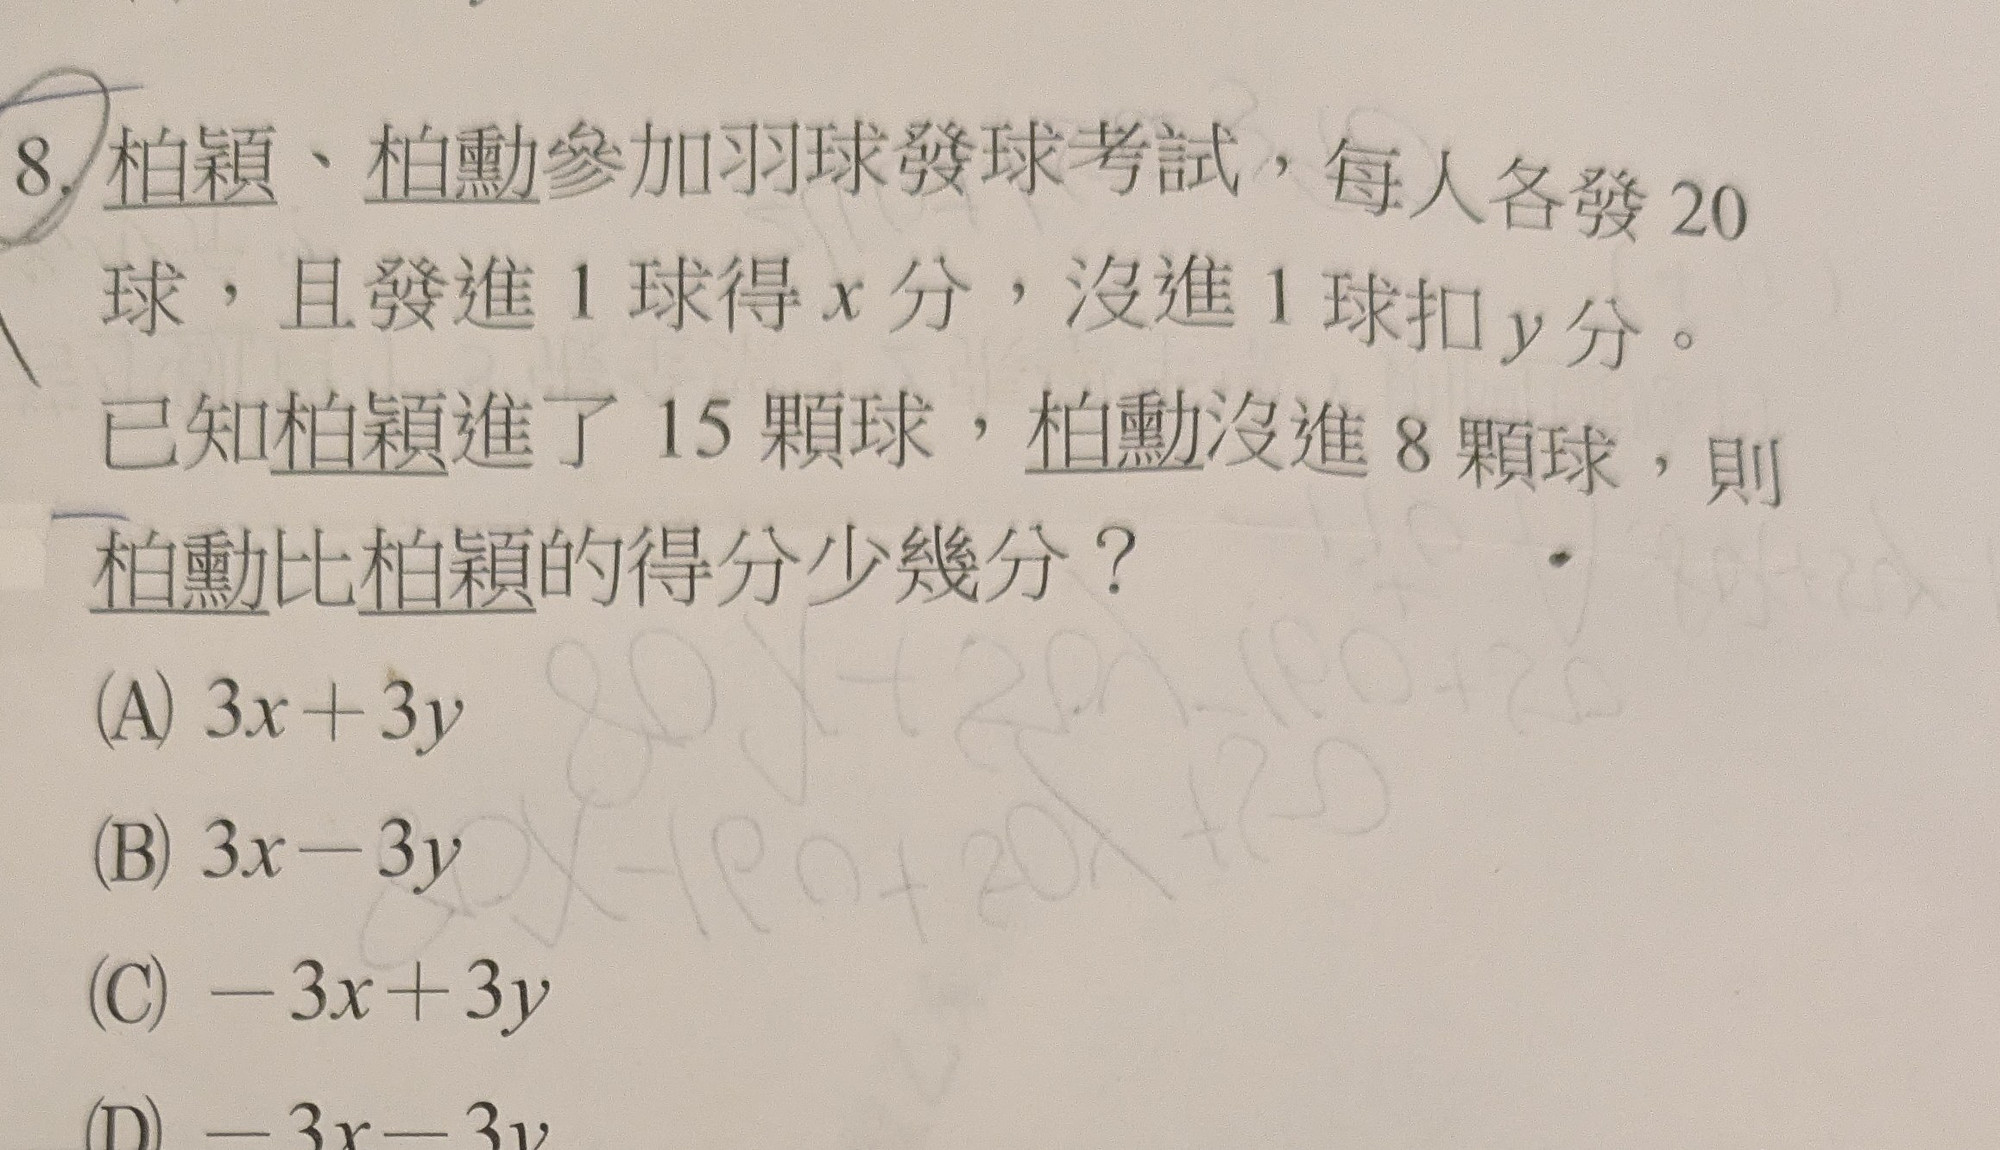 8. 柏穎、柏勳參加羽球發球考試，每人各發 20
球，且發進 1 球得 x 分，沒進 1 球扣 y 分。
已知柏穎進了 15 顆球，柏勳沒進 8 顆球，則
柏勳比柏穎的得分少幾分？
(A) 3x＋3y
(B) 3x－3y
(C) －3x＋3y
(D) －3x－3y